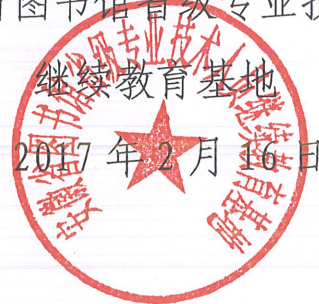 图书馆省级专业技
继续教育基地
2017 年 2 月 16 日
安徽省图书馆省级专业技术人员继续教育基地